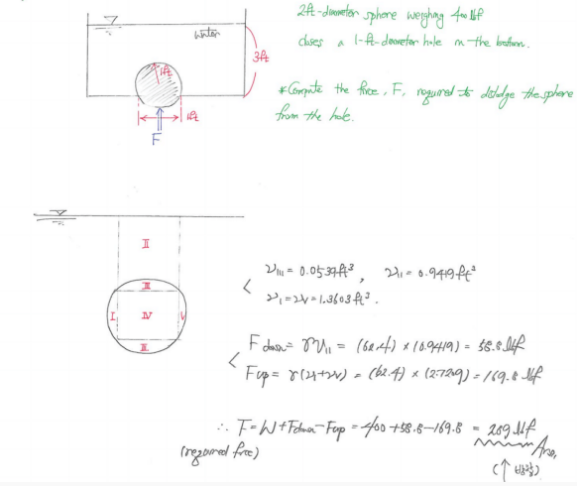 2ft-diameter sphere weighing 400 lbf
closes a 1-ft-diameter hole in the bottom.
water
3ft
1ft
*Compute the force, F, required to dislodge the sphere
from the hole.
1ft
F
II
III
I IV V
III
V_III = 0.0539 ft³, V_II = 0.9419 ft³
V_I = V_V = 1.3603 ft³.
F down = γV_II = (62.4) × (0.9419) = 58.8 lbf
Fup = γ(V_I+V_V) = (62.4) × (2.7209) = 169.8 lbf
∴ F = W + Fdown - Fup = 400 + 58.8 - 169.8 = 289 lbf
(required force) Ans.
(↑ 방향)